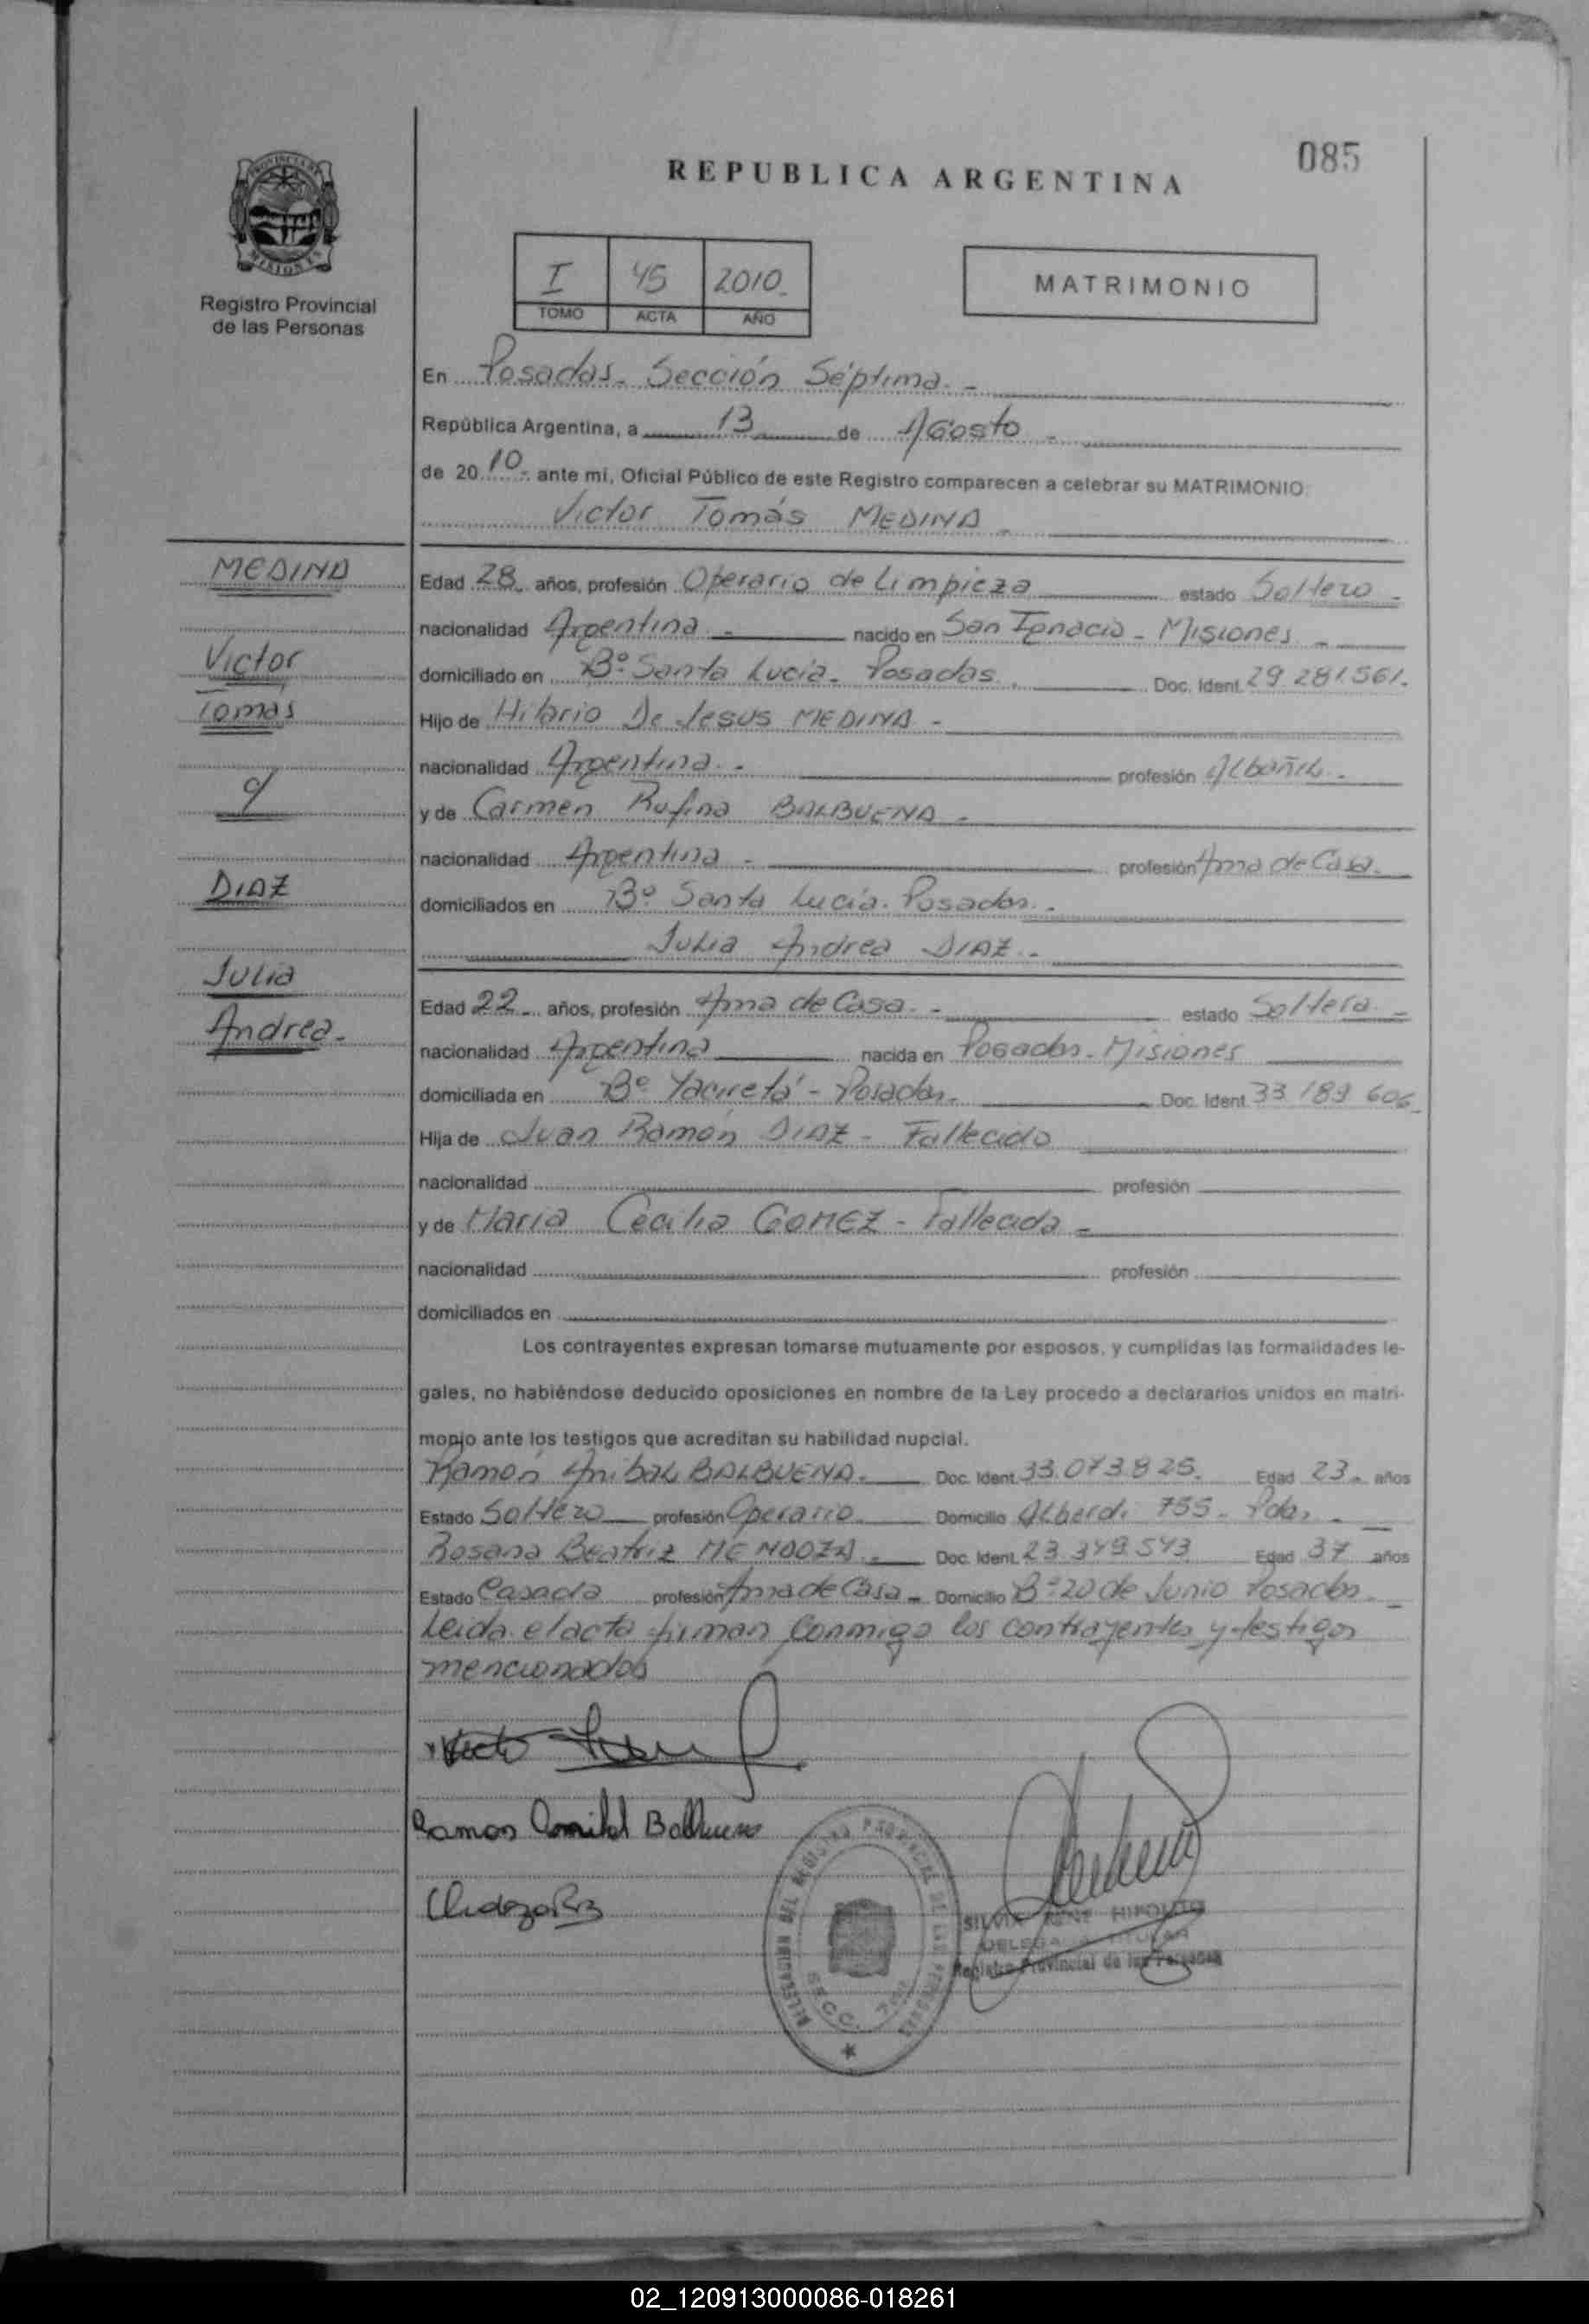 085
REPUBLICA ARGENTINA
PROVINCIA DE
MISIONES
Registro Provincial
de las Personas
I 45 2010.
TOMO ACTA AÑO
MATRIMONIO
En Posadas. Sección Séptima. -
República Argentina, a 13 de Agosto -
de 2010. ante mi, Oficial Público de este Registro comparecen a celebrar su MATRIMONIO:
Victor Tomás MEDINA
MEDINA
Victor
Tomas
y
DIAZ
Julia
Andrea.
Edad 28. años, profesión Operario de Limpieza estado Soltero -
nacionalidad Argentina - nacido en San Ignacio - Misiones -
domiciliado en Bº Santa Lucía. Posadas. Doc. Ident. 29.281.561.
Hijo de Hilario De Jesus MEDINA -
nacionalidad Argentina. - profesión Albañil -
y de Carmen Rufina BALBUENA -
nacionalidad Argentina - profesión Ama de Casa.
domiciliados en Bº Santa Lucía. Posadas. -
Julia Andrea DIAZ. -
Edad 22 - años, profesión Ama de Casa. - estado Soltera -
nacionalidad Argentina nacida en Posadas. Misiones
domiciliada en Bº Yacyretá - Posadas. Doc. Ident. 33.189.606
Hija de Juan Ramón DIAZ - Fallecido
nacionalidad profesión
y de Maria Cecilia GOMEZ - Fallecida -
nacionalidad profesión
domiciliados en
Los contrayentes expresan tomarse mutuamente por esposos, y cumplidas las formalidades le-
gales, no habiéndose deducido oposiciones en nombre de la Ley procedo a declararlos unidos en matri-
monio ante los testigos que acreditan su habilidad nupcial.
Ramón Anibal BALBUENA. Doc. Ident. 33.073.825. Edad 23. años
Estado Soltero profesión Operario Domicilio Alberdi 755 - Pdas. -
Rosana Beatriz MENDOZA. Doc. Ident. 23.349.543 Edad 37 años
Estado Casada profesión Ama de Casa - Domicilio Bº 20 de Junio Posadas. -
Leida el acta firman conmigo los contrayentes y testigos
mencionados
Ramon Anibal Balbuena
DELEGACION DEL REGISTRO PROVINCIAL DE LAS PERSONAS
SECC. 7ma
SILVIA RENE HIPOLITO
DELEGADA TITULAR
Registro Provincial de las Personas
02_120913000086-018261